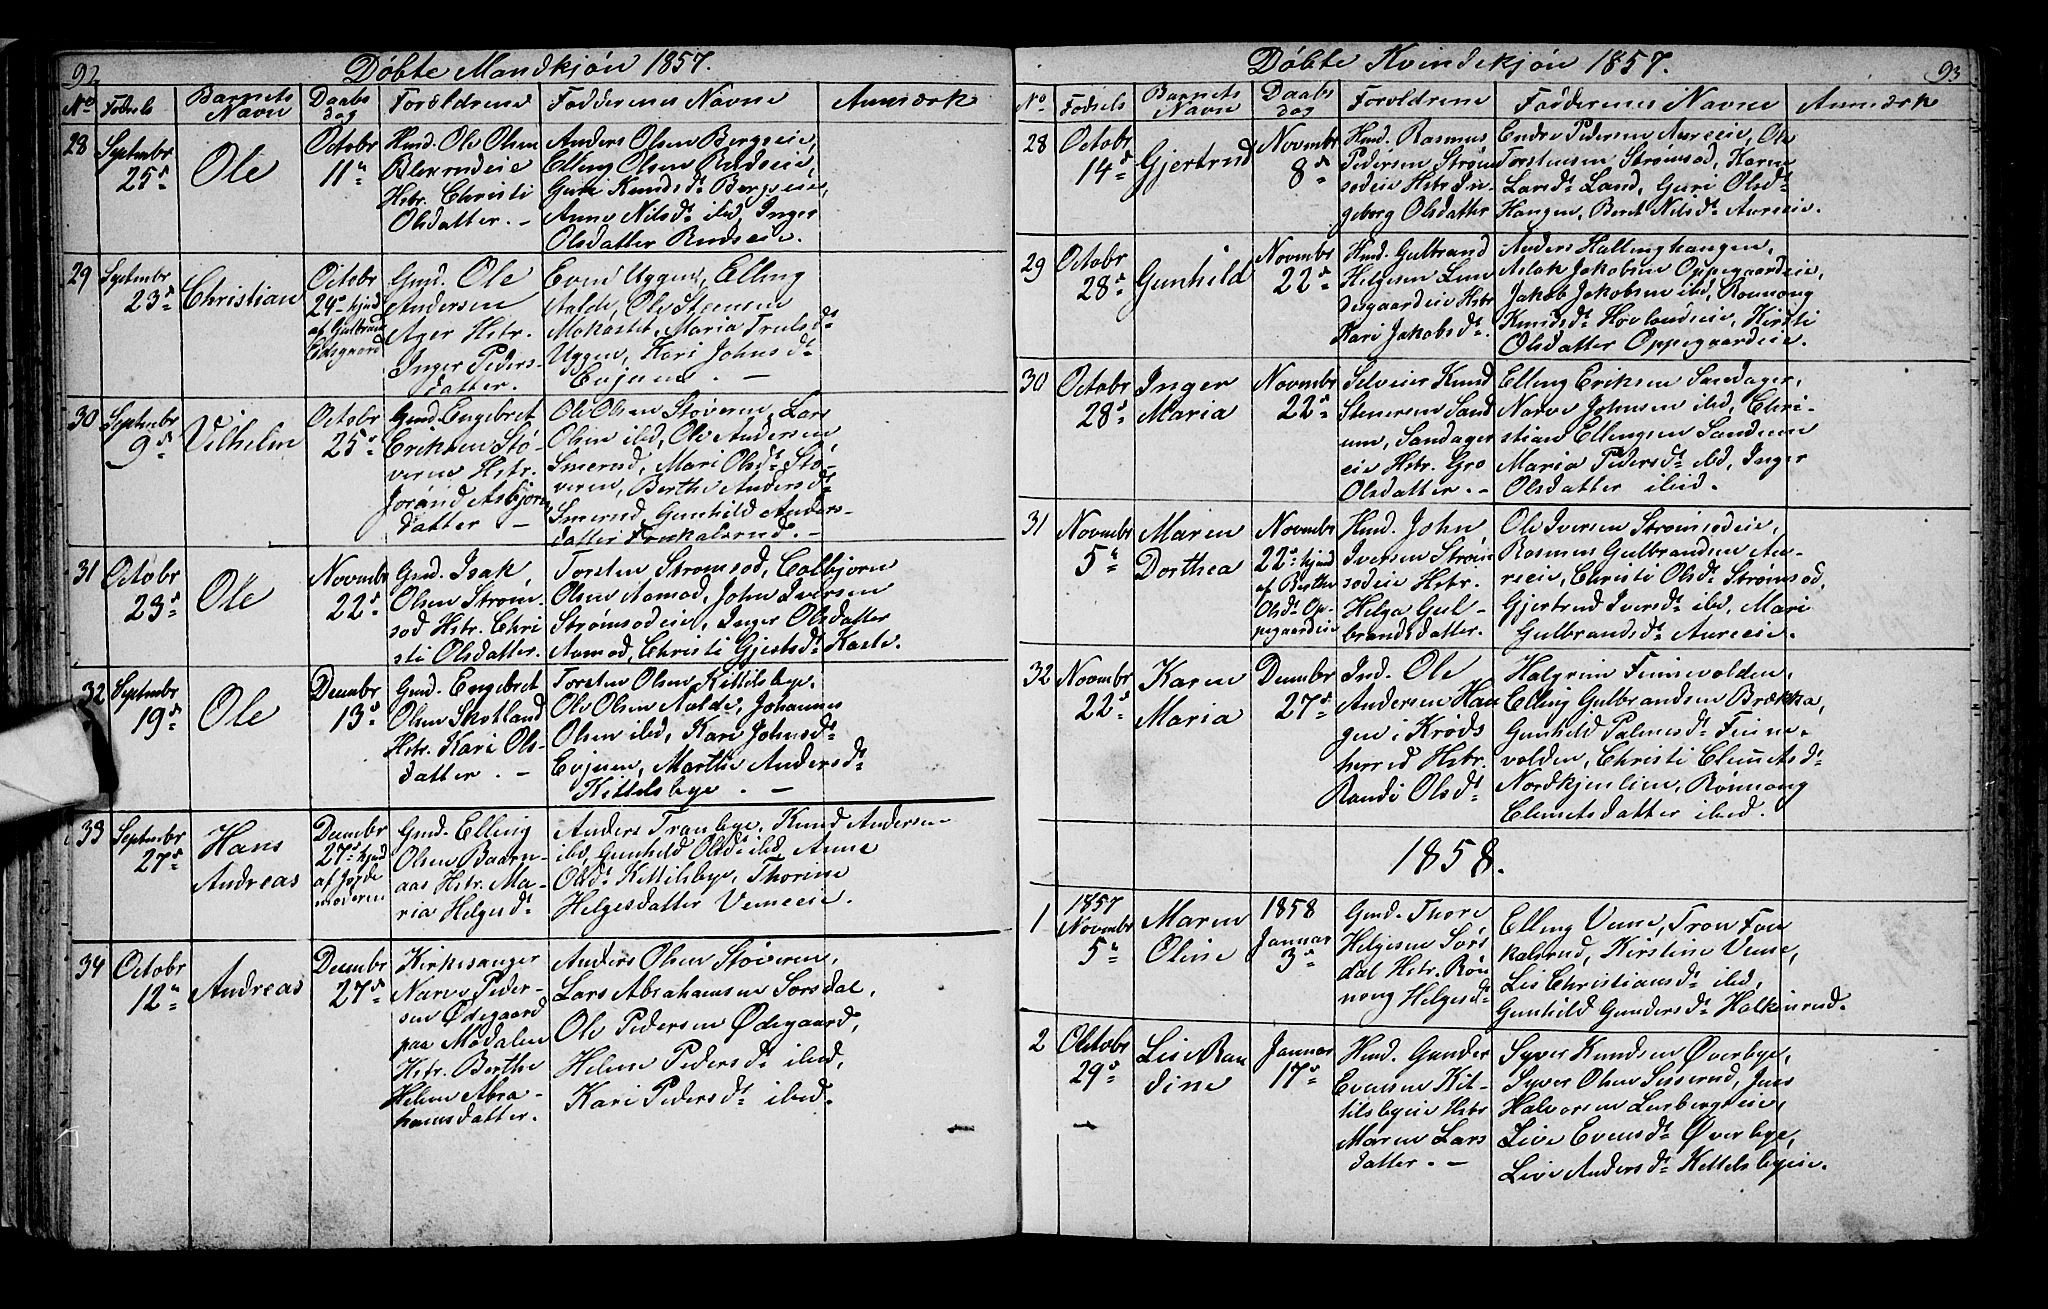 92
Döbte Mandkjön 1857.
No Födsels Barnets Navn Daabs dag Foreldrene Fadderenes Navne Anmærk
28 Septembr 25de
Ole
Octobr 11te
Hmd. Ole Olsen
Hstr. Christi
Olsdatter. -
Anders Olsen Bergseie,
Elling Olsen Rudseie,
Guri Knudsdt Bergseie,
Anne Nilsdt ibd, Inger
Olsdatter Rudseie.
29 Septembr 23de
Christian
Octobr
29de hjmd
af Gulbrand
Gmd. Ole
Andersen
Ager Hstr.
Inger Peders-
datter.
Even Uggen, Elling
Aalde, Ole Stensen
Mokastet, Maria Trulsdt
Uggen, Kari Johnsdt
Evjuen. -
30 Septembr 9de
Vilhelm
Octobr 25de
Gmd. Engebret
Eriksen Stö-
veren Hstr.
Jörand Asbjörn
datter -
Ole Olsen Stöveren, Lars
Olsen ibd, Ole Andersen
Smerud, Mari Olsdt Stö-
veren, Berthe Andersdt
Smerud, Gunhild Anders-
datter Frokalsrud. -
31 Octobr 23de
Ole
Novembr 22de
Gmd. Isak
Olsen Ström-
sod Hstr. Chri
sti Olsdatter.
Torsten Strömsod, Colbjörn
Olsen Aamod, John Iversen
Strömsodeie, Inger Olsdatter
Aamod, Christi Gjertsdt Kaste.
32 Septembr 19de
Ole
Decembr 13de
Gmd. Engebret
Olsen Skotland
Hstr. Kari Ols-
datter. -
Torsten Olsen Kittilsbye,
Ole Olsen Aalde, Johannes
Olsen ibd, Kari Johnsdt
Evjuen, Marthe Andersdt
Kittelsbye. -
33 Septembr 27de
Hans
Andreas
Decembr
27de hjmd
af Jorde
moderen
Gmd. Elling
Olsen Baarn-
aas Hstr. Ma-
ria Helgesdt
Anders Tranbye, Knud Andersen
ibd, Gunhild Olsdt ibd, Anne
Olsdt Kittilsbye, Thorine
Helgesdatter Vemeeie.
34 Octobr 12te
Andreas
Decembr 27de
Kirkesanger
Narve Peder-
sen Ödegaard
paa Modalen
Hstr. Berthe
Helene Abra-
hamsdatter.
Anders Olsen Stöveren,
Lars Abrahamsen Sorsdal,
Ole Pedersen Ödegaard,
Helene Pedersdt ibid,
Kari Pedersdt ibid.
93
Döbte Kvindekjön 1857.
No Födsels Barnets Navn Daabs dag Foreldrene Fadderenes Navne Anmærk
28 Octobr 14de
Gjertrud
Novembr 8de
Hmd. Rasmus
Pedersen Ström
sodeie Hstr. In-
geborg Olsdatter
Endre Pedersen Aureeie, Ole
Torstensen Strömsod, Karen
Larsdt Land, Guri Olsdt
Haugen, Beret Nilsdt Aureeie.
29 Octobr 28de
Gunhild
Novembr 22de
Hmd. Gulbrand
Helgesen Lun
degaardeie Hstr
Kari Jakobsdt
Anders Hallinghaugen,
Aslak Jakobsen Oppegaardeie,
Jakob Jakobsen ibid, Rönnong
Knudsdt Hövlandeie, Kirsti
Olsdatter Oppegaardeie.
30 Octobr 28de
Inger
Maria
Novembr 22de
Selveier Knud
Stenersen Sand
um, Sandager
eie Hstr. Gro
Olsdatter. -
Elling Eriksen Sandager,
Narve Johnsen ibd, Chri-
stian Ellingsen Sandum
Maria Pedersdt ibd, Inger
Olsdatter ibid.
31 Novembr 5te
Maren
Dorthea
Novembr
22de hjmd
af Berthe
Olsdt Op-
pegaardeie
Hmd. John
Iversen Ström
sodeie Hstr.
Helga Gul-
brandsdatter.
Ole Iversen Strömsodeie,
Rasmus Gulbrandsen Au-
reeie, Christi Olsdt Strömsod,
Gjertrud Iversdt ibd, Mari
Gulbrandsdt Aureeie.
32 Novembr 22de
Karen
Maria
Decembr 27de
Ind. Ole
Andersen Hau
gen i Kröds
herred Hstr.
Randi Olsdt
Halgrim Finnevolden,
Elling Gulbrandsen Brækka,
Gunhild Palmesdt Finne-
volden, Christi Clemetsdt
Nordkjenlien, Rönnong
Clemetsdatter ibid.
1858.
1 1857 Novembr 5te
Maren
Oline
1858 Januar 3de
Gmd. Thore
Helgesen Sörs
dal Hstr. Rön
nong Helgesdt
Elling Veme, Tron Fro
kalsrud, Kirstine Veme,
Lis Christiansdt ibd,
Gunhild Gundersdt Halkinrud.
2 Octobr 29de
Lise Ran
dine
Januar 17de
Hmd. Gunder
Evensen Kit-
tilsbyeie Hstr
Maren Lars
datter. -
Syver Knudsen Överbye,
Syver Olsen Sisserud, Jens
Halvorsen Lerbergseie,
Live Evensdt Överbye,
Live Andersdt Kittelsbyeie.